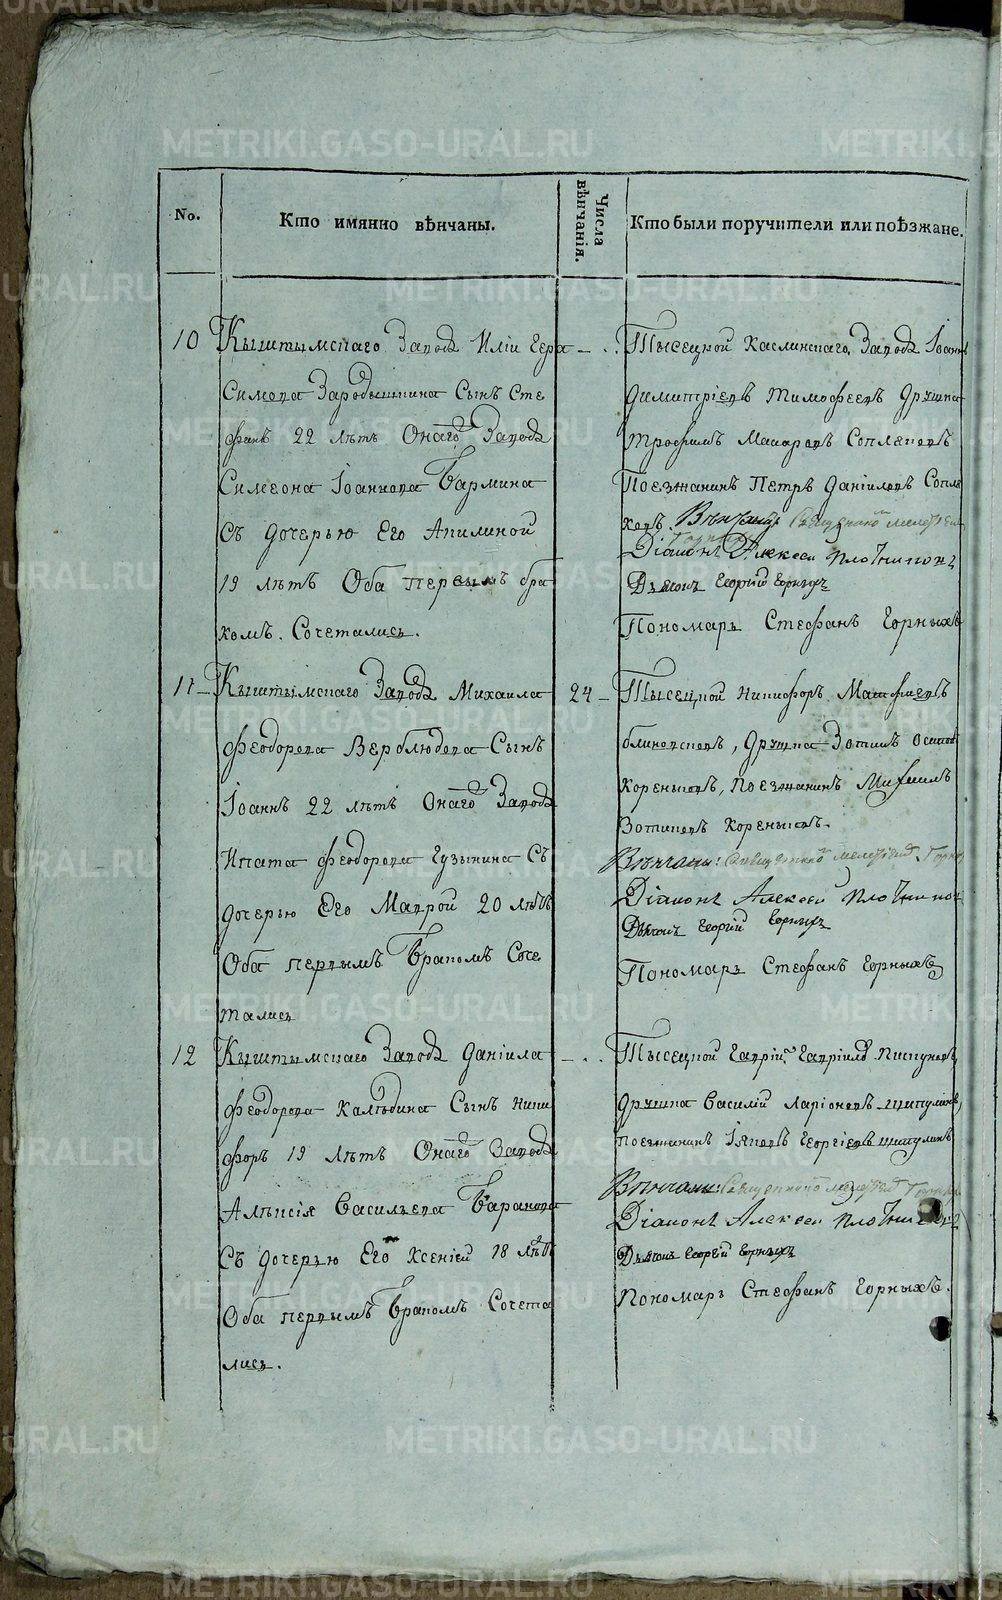 No.
Кто имянно вѣнчаны.
Числа вѣнчанія.
Кто были поручители или поѣзжане.
10 Кыштымскаго Завода Иліи Гера
симова Зародышина Сынъ Сте
фанъ 22 лѣтъ Онаго Завода
Симеона Іоаннова Бармина
Съ дочерью Его Акилиной
19 лѣтъ Оба первымъ бра
комъ Сочетались.
Тысецкой Каслинскаго Завода Іоаннъ
Димитріевъ Тимофеевъ Дружка
Трофимъ Макаровъ Сопленовъ
Поезжанинъ Петръ Даніиловъ
Вѣнчали: Священникъ
Діаконъ Алексеи Плотниковъ
Дьячокъ Георгій Горныхъ
Пономарь Стефанъ Горныхъ
11 Кыштымскаго Завода Михаила 24
Феодорова Верблюдова Сынъ
Іоаннъ 22 лѣтъ Онаго Завода
Ипата Феодорова Гузынина Съ
дочерью Его Маврой 20 лѣтъ
Оба первымъ Бракомъ Соче
тались
Тысецкой Никифоръ
Дружка Зотикъ Осиповъ
Кореныхъ, Поезжанинъ
Зотиковъ
Вѣнчали: Священникъ
Діаконъ Алексеи Плотниковъ
Дьячокъ Георгій Горныхъ
Пономарь Стефанъ Горныхъ
12 Кыштымскаго Завода Даніила
Феодорова Сынъ Ники
форъ 19 лѣтъ Онаго Завода
Алексія Васильева Баранова
Съ дочерью Его Ксеніей 18 лѣтъ
Оба первымъ Бракомъ Сочета
лись.
Тысецкой Гавріилъ Гавріиловъ
Дружка Василій Ларіоновъ Шипулинъ,
поезжанинъ Іяковъ Георгіевъ Шипулинъ
Вѣнчали: Священникъ
Діаконъ Алексеи Плотниковъ
Дьячокъ Георгій Горныхъ
Пономарь Стефанъ Горныхъ.
METRIKI.GASO-URAL.RU